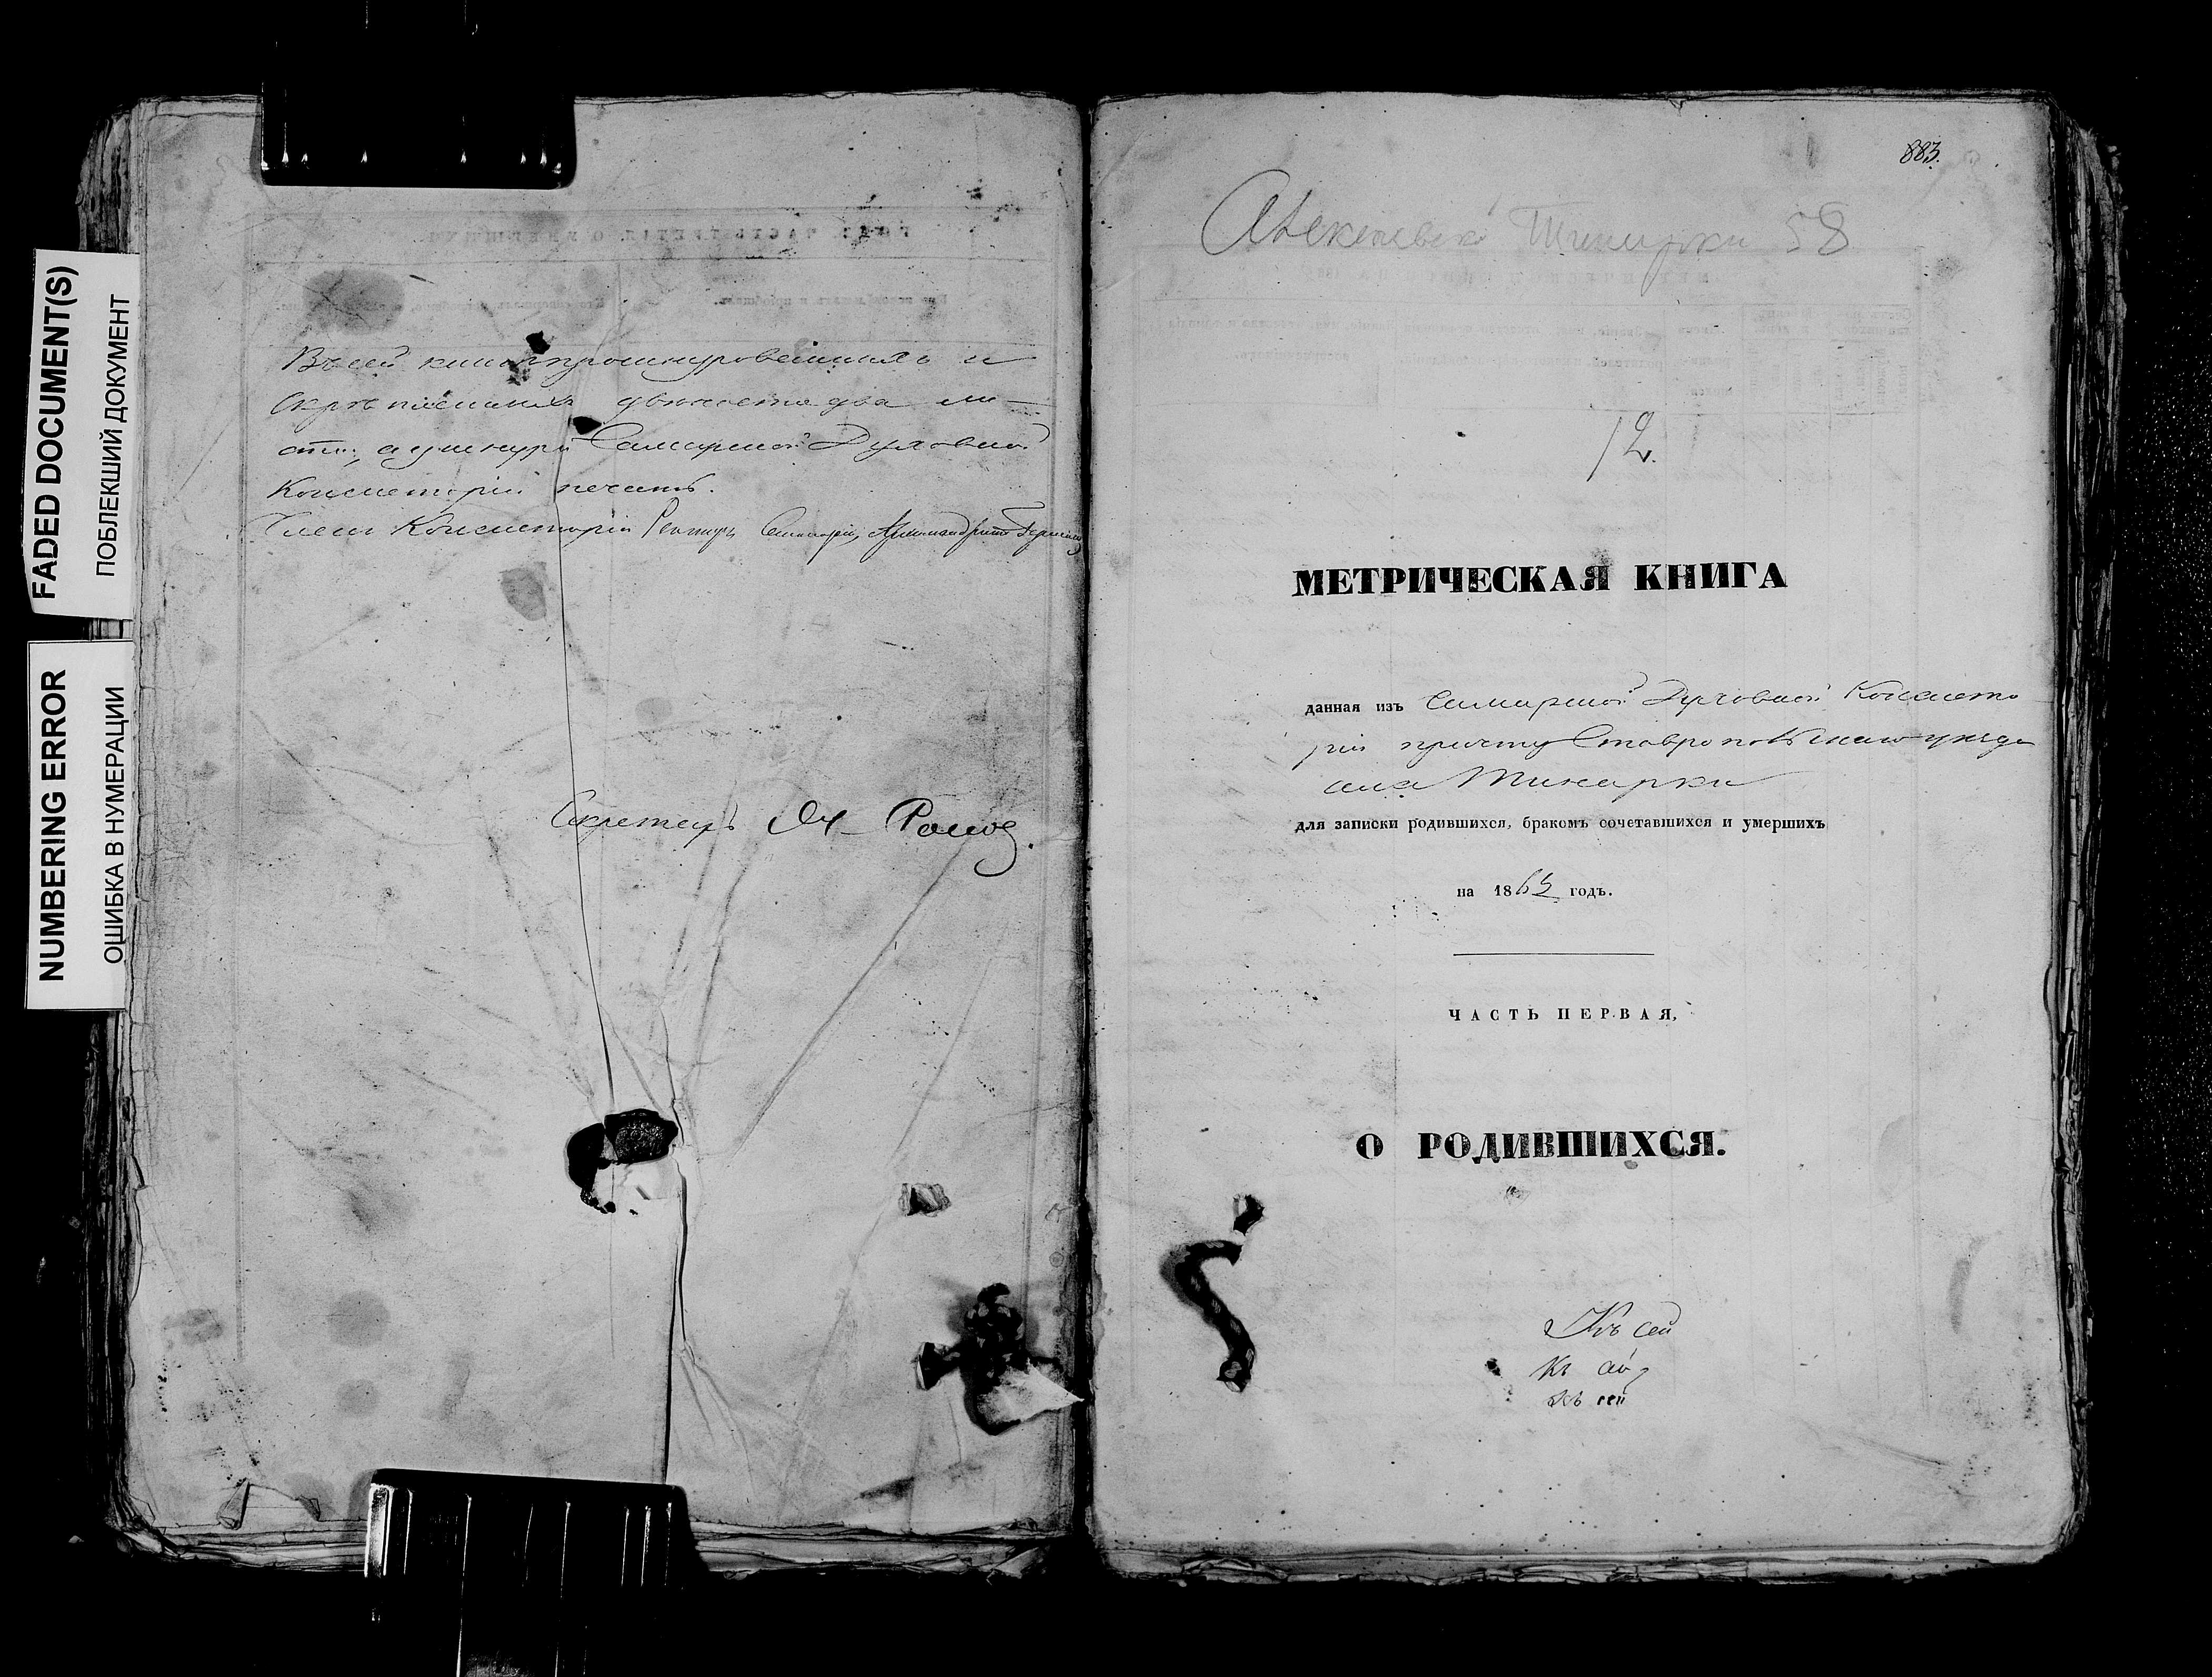 FADED DOCUMENT(S)
ПОБЛЕКШИЙ ДОКУМЕНТ
NUMBERING ERROR
ОШИБКА В НУМЕРАЦИИ
Въ сей книгѣ прошнурованныхъ и
скрѣпленныхъ два ли-
ста, а у шнура Самарской Духовной
Консисторіи печать.
Членъ Консисторіи Ректоръ Семинаріи, Архимандритъ
Секретарь
883.
Тинарки 58
12.
МЕТРИЧЕСКАЯ КНИГА
данная изъ Самарской Духовной Консисто
ріи причту Ставропольскаго уѣзда
села Тинарки
для записки родившихся, бракомъ сочетавшихся и умершихъ
на 1863 годъ.
ЧАСТЬ ПЕРВАЯ,
О РОДИВШИХСЯ.
Къ сей
Къ
Къ сей